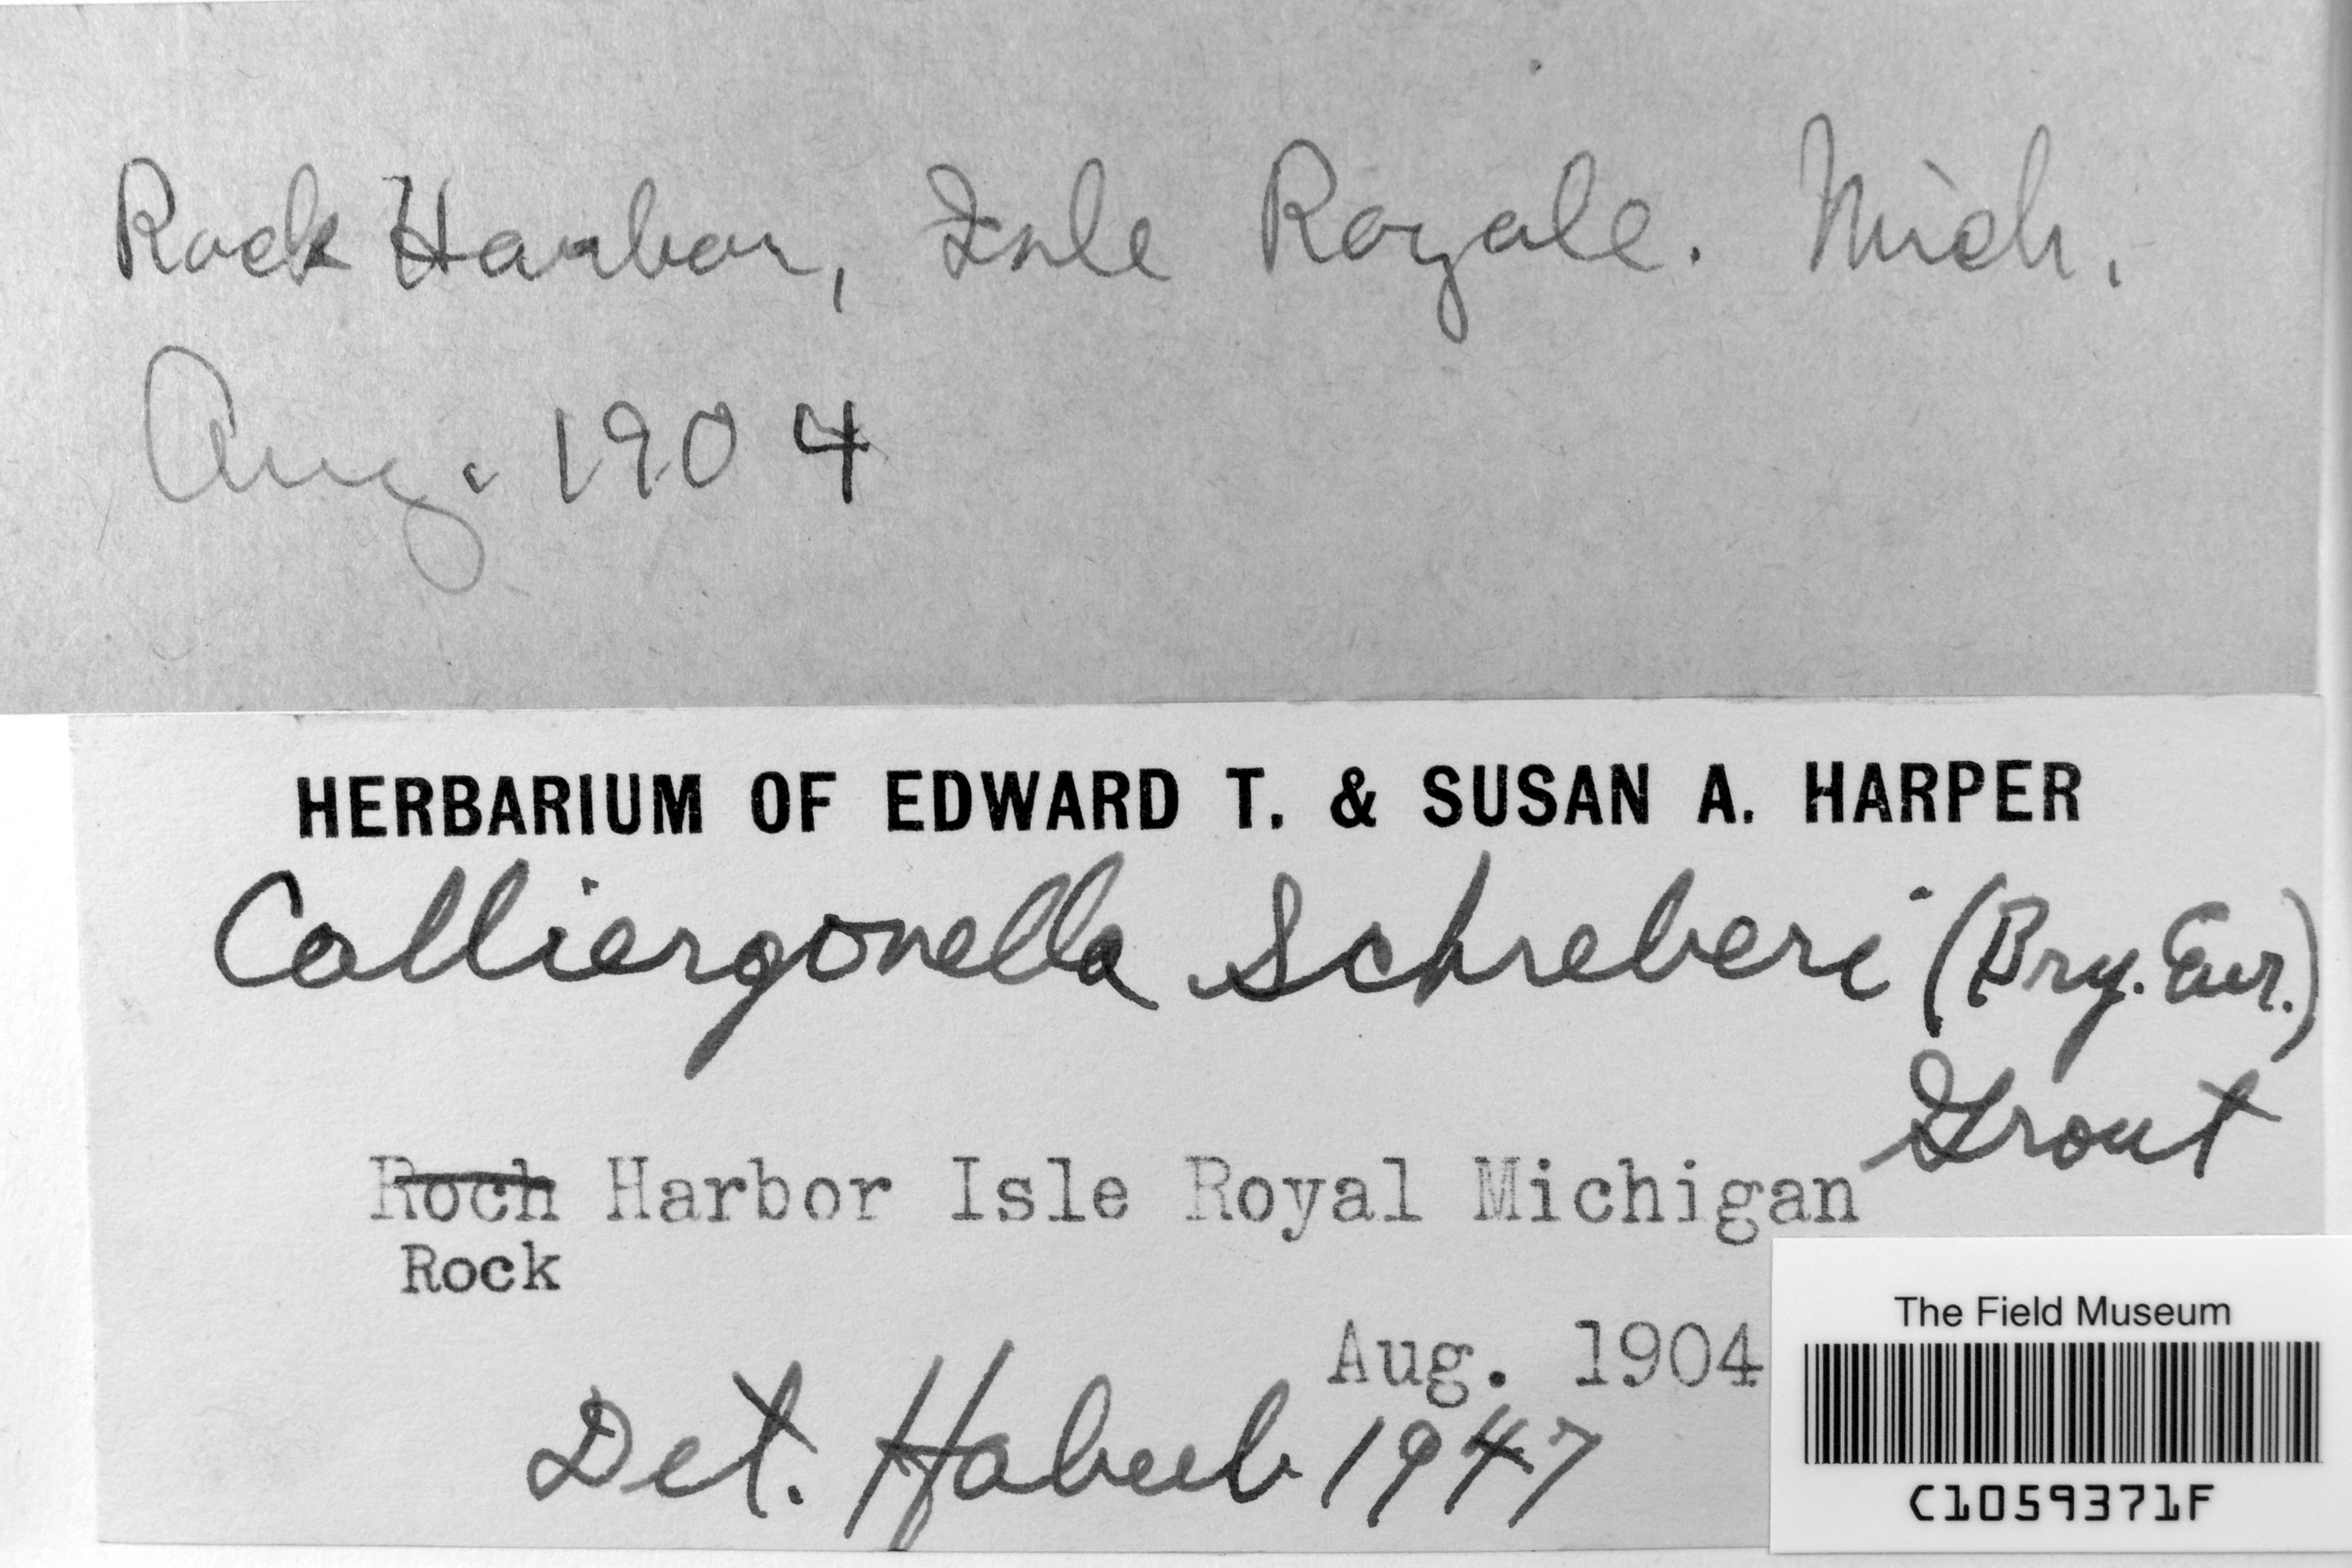 Rock Harbor, Isle Royale. Mich.
Aug. 1904
HERBARIUM OF EDWARD T. & SUSAN A. HARPER
Calliergonella Schreberi (Bry. Eur.)
Grout
Roch Harbor Isle Royal Michigan
Rock
Aug. 1904
Det. Habeeb 1947
The Field Museum
C1059371F